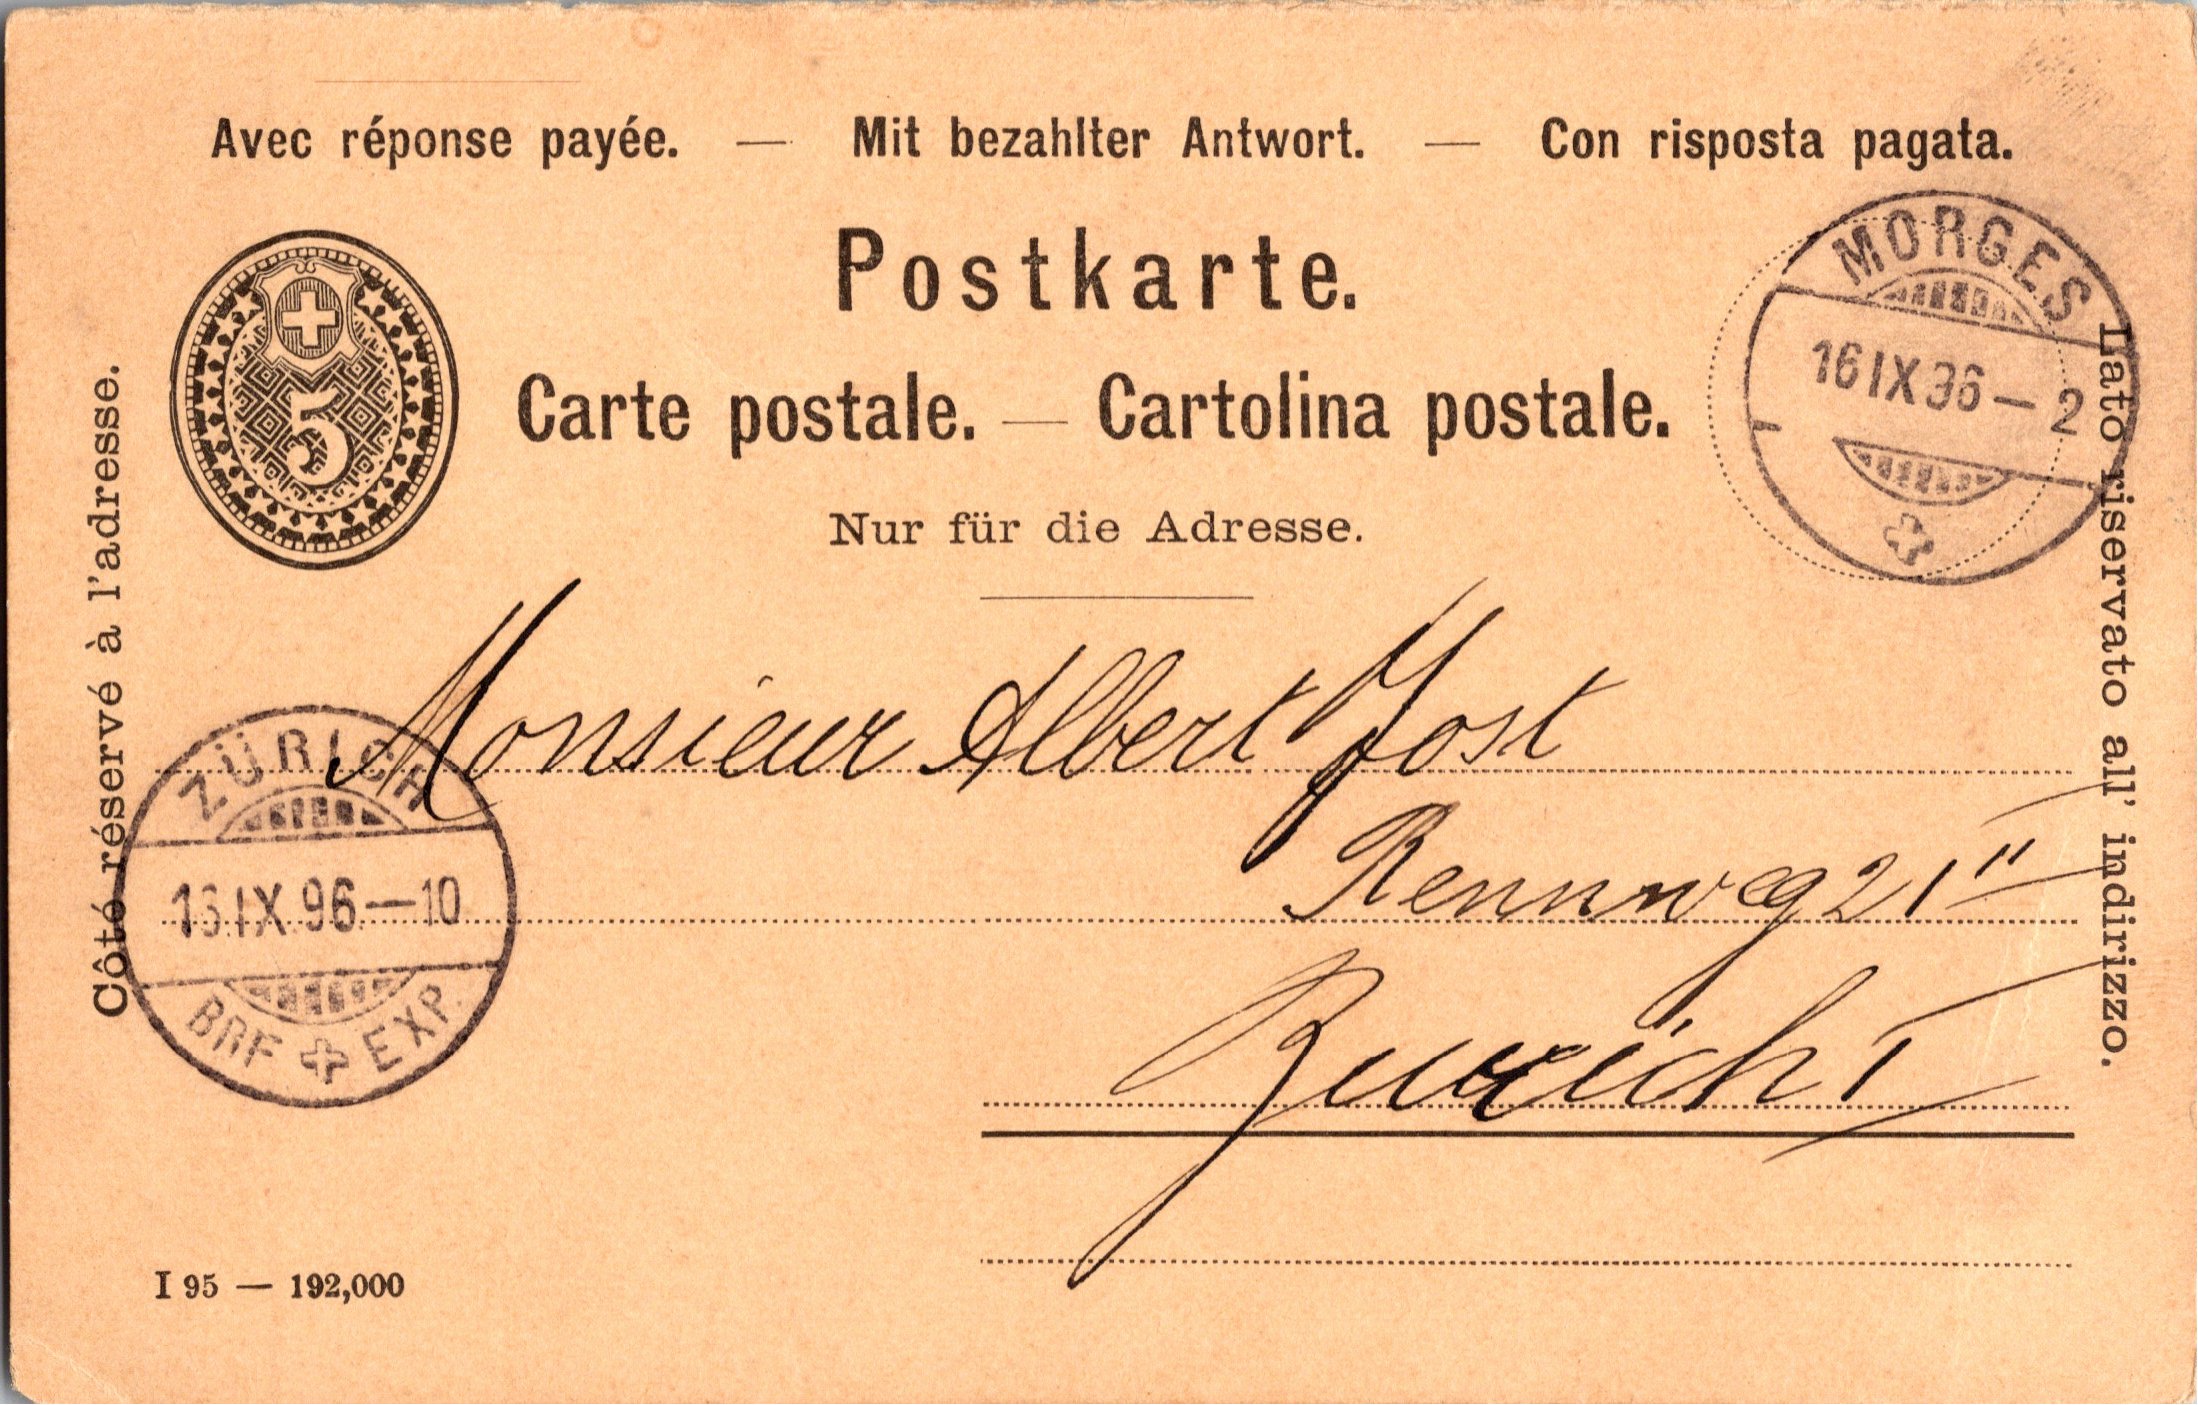 Avec réponse payée. — Mit bezahlter Antwort. — Con risposta pagata.
Postkarte.
Carte postale. — Cartolina postale.
Nur für die Adresse.
5
MORGES
16 IX 96 — 2
Côté réservé à l'adresse.
Lato riservato all' indirizzo.
Monsieur Albert Jost
Rennweg 21 II
Zürich I
ZÜRICH
16 IX 96 — 10
BRF EXP.
I 95 — 192,000